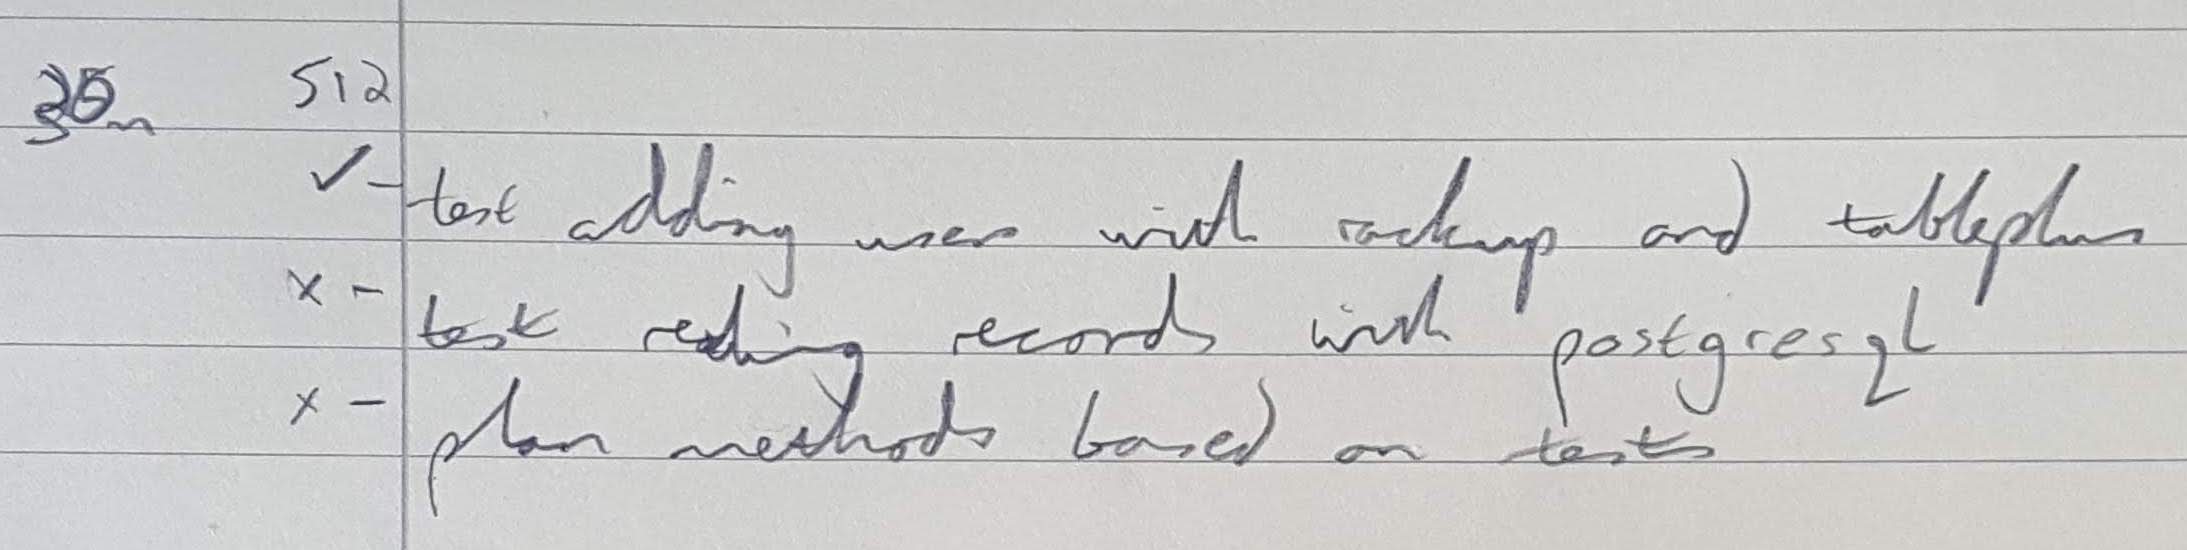 512
✓ - test adding users with rackup and tableplus
x - test reading records with postgresql
x - plan methods based on tests